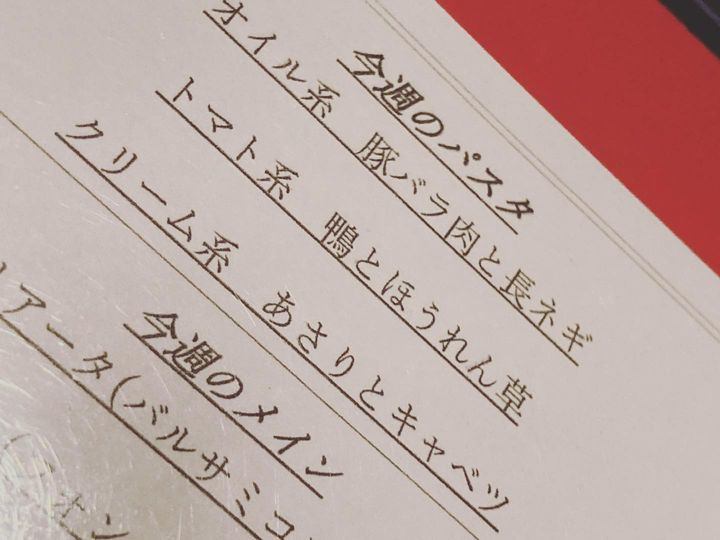 今週のパスタ
オイル系 豚バラ肉と長ネギ
トマト系 鴨とほうれん草
クリーム系 あさりとキャベツ
今週のメイン
アータ(バルサミコ
オン